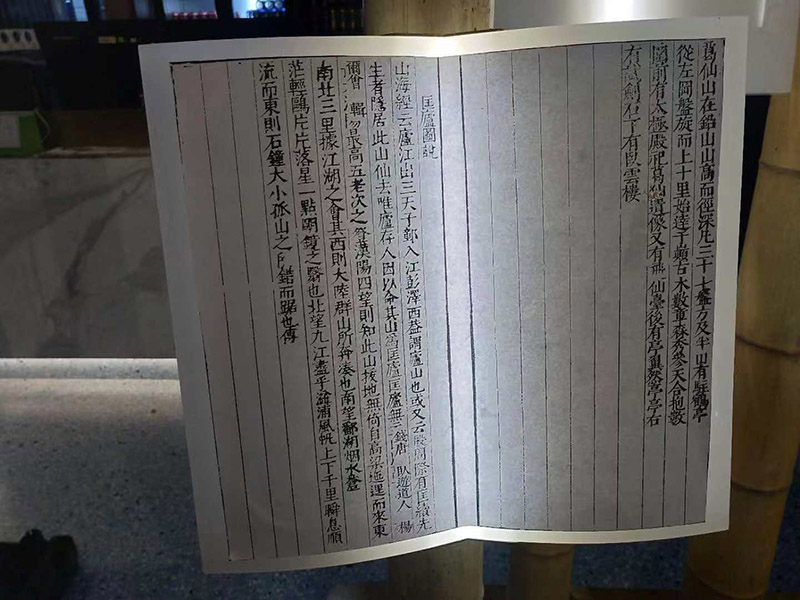 葛仙山在鉛山山高而徑深凡三十七盤方及半山有駐鶴亭
從左關盤旋而上十里始達于巔古木數章森秀參天合抱數
圍前有太極殿祀葛仙遺像又有飛仙臺後有亭真亭亭右
有試劍石下有臥雲樓
匡廬圖說
山海經云廬江出三天子鄣入江彭澤西葢謂廬山也或又云殷周際有匡續先
生者隱居此山仙去唯廬存人因以命其山為匡廬匡廬無 錢唐 臥遊道人 楊
爾曾 輯 最高五老次之登漢陽四望則知此山拔地無倚自高梁迤邐而來東
南北三里據江湖之會其西則大陸群山所奔湊也南望鄱湖烟水蒼
茫輕鷗片片落星一點明鏡之翳也北望九江盡乎湓浦風帆上下千里瞬息順
流而東則石鐘大小孤山之所錯而踞也傳